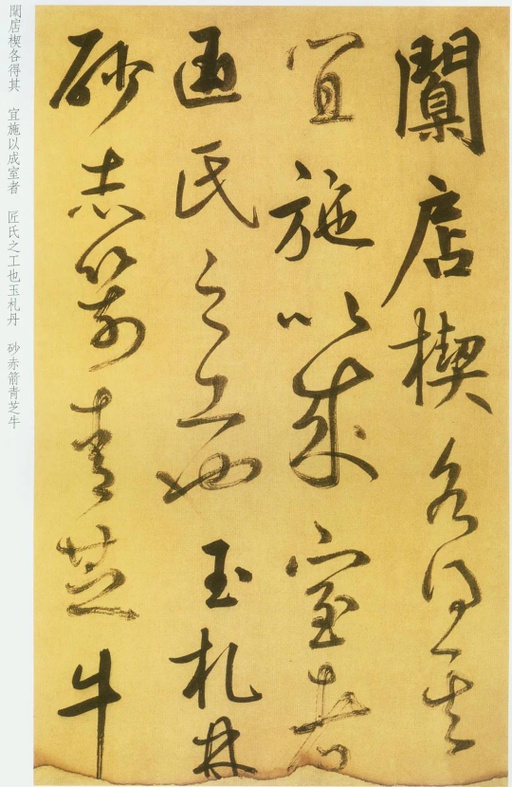 闑扂楔各得其
宜施以成室者
匠氏之工也玉札丹
砂赤箭青芝牛
闑扂楔各得其 宜施以成室者 匠氏之工也玉札丹 砂赤箭青芝牛